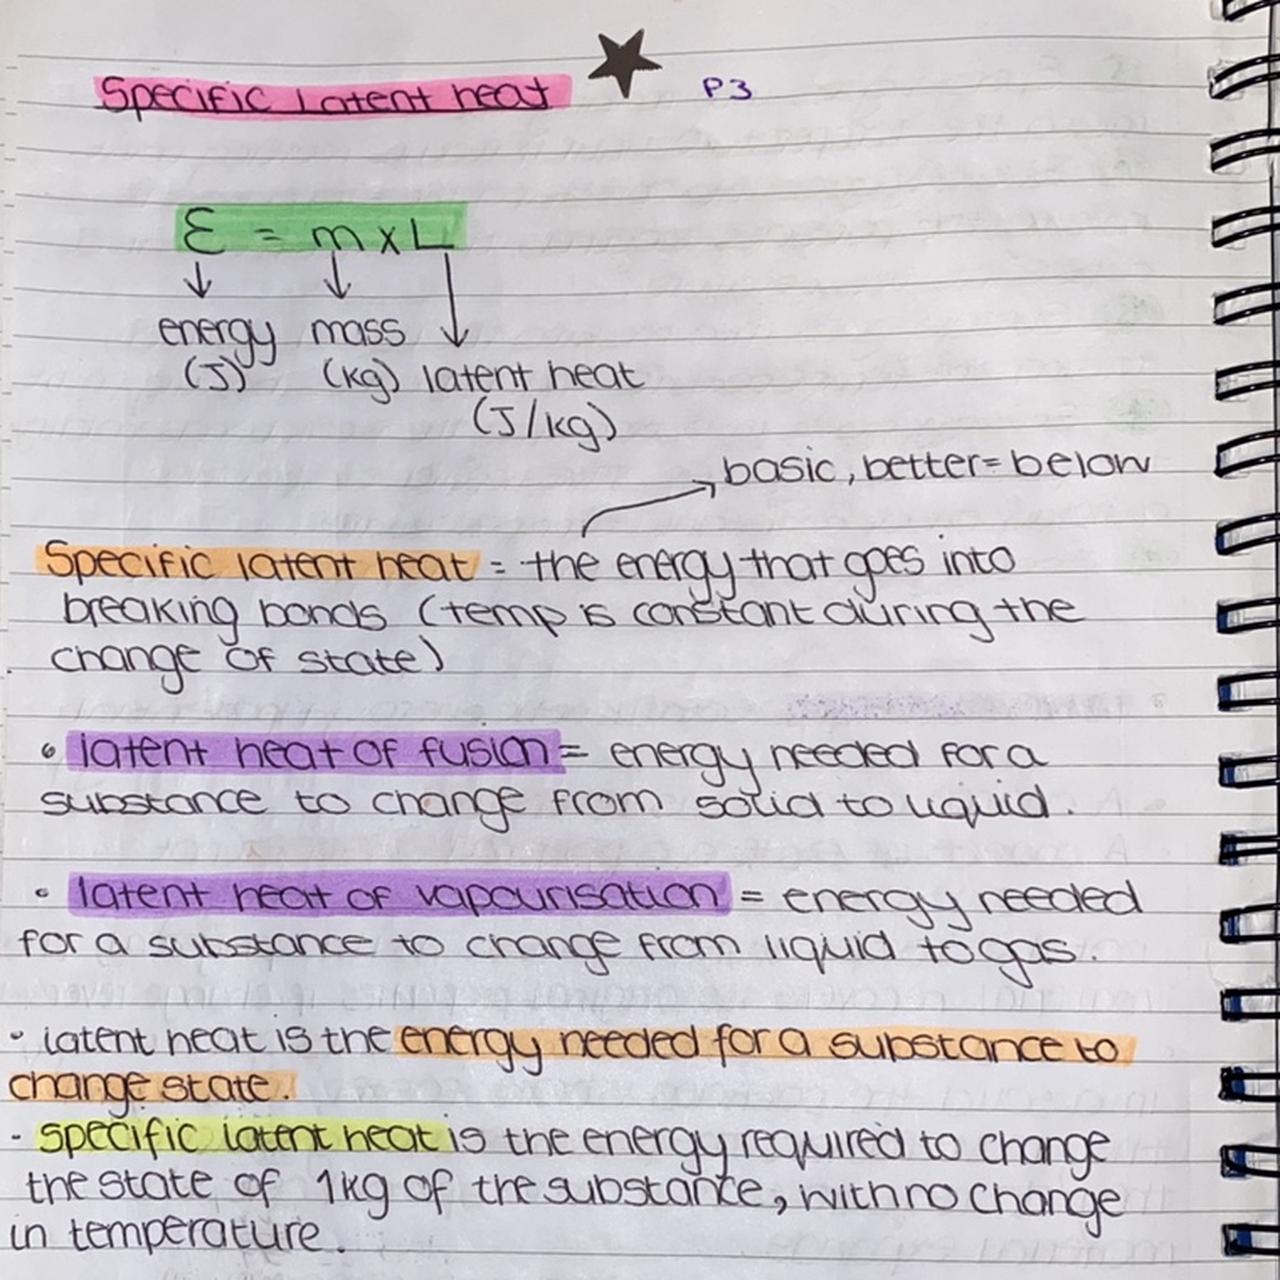 Specific latent heat P3
E = m x L
energy mass
(J) (kg) latent heat
(J/kg)
basic, better = below
Specific latent heat = the energy that goes into
breaking bonds (temp is constant during the
change of state)
• latent heat of fusion = energy needed for a
substance to change from solid to liquid.
• latent heat of vapourisation = energy needed
for a substance to change from liquid to gas.
• latent heat is the energy needed for a substance to
change state.
- specific latent heat is the energy required to change
the state of 1kg of the substance, with no change
in temperature.